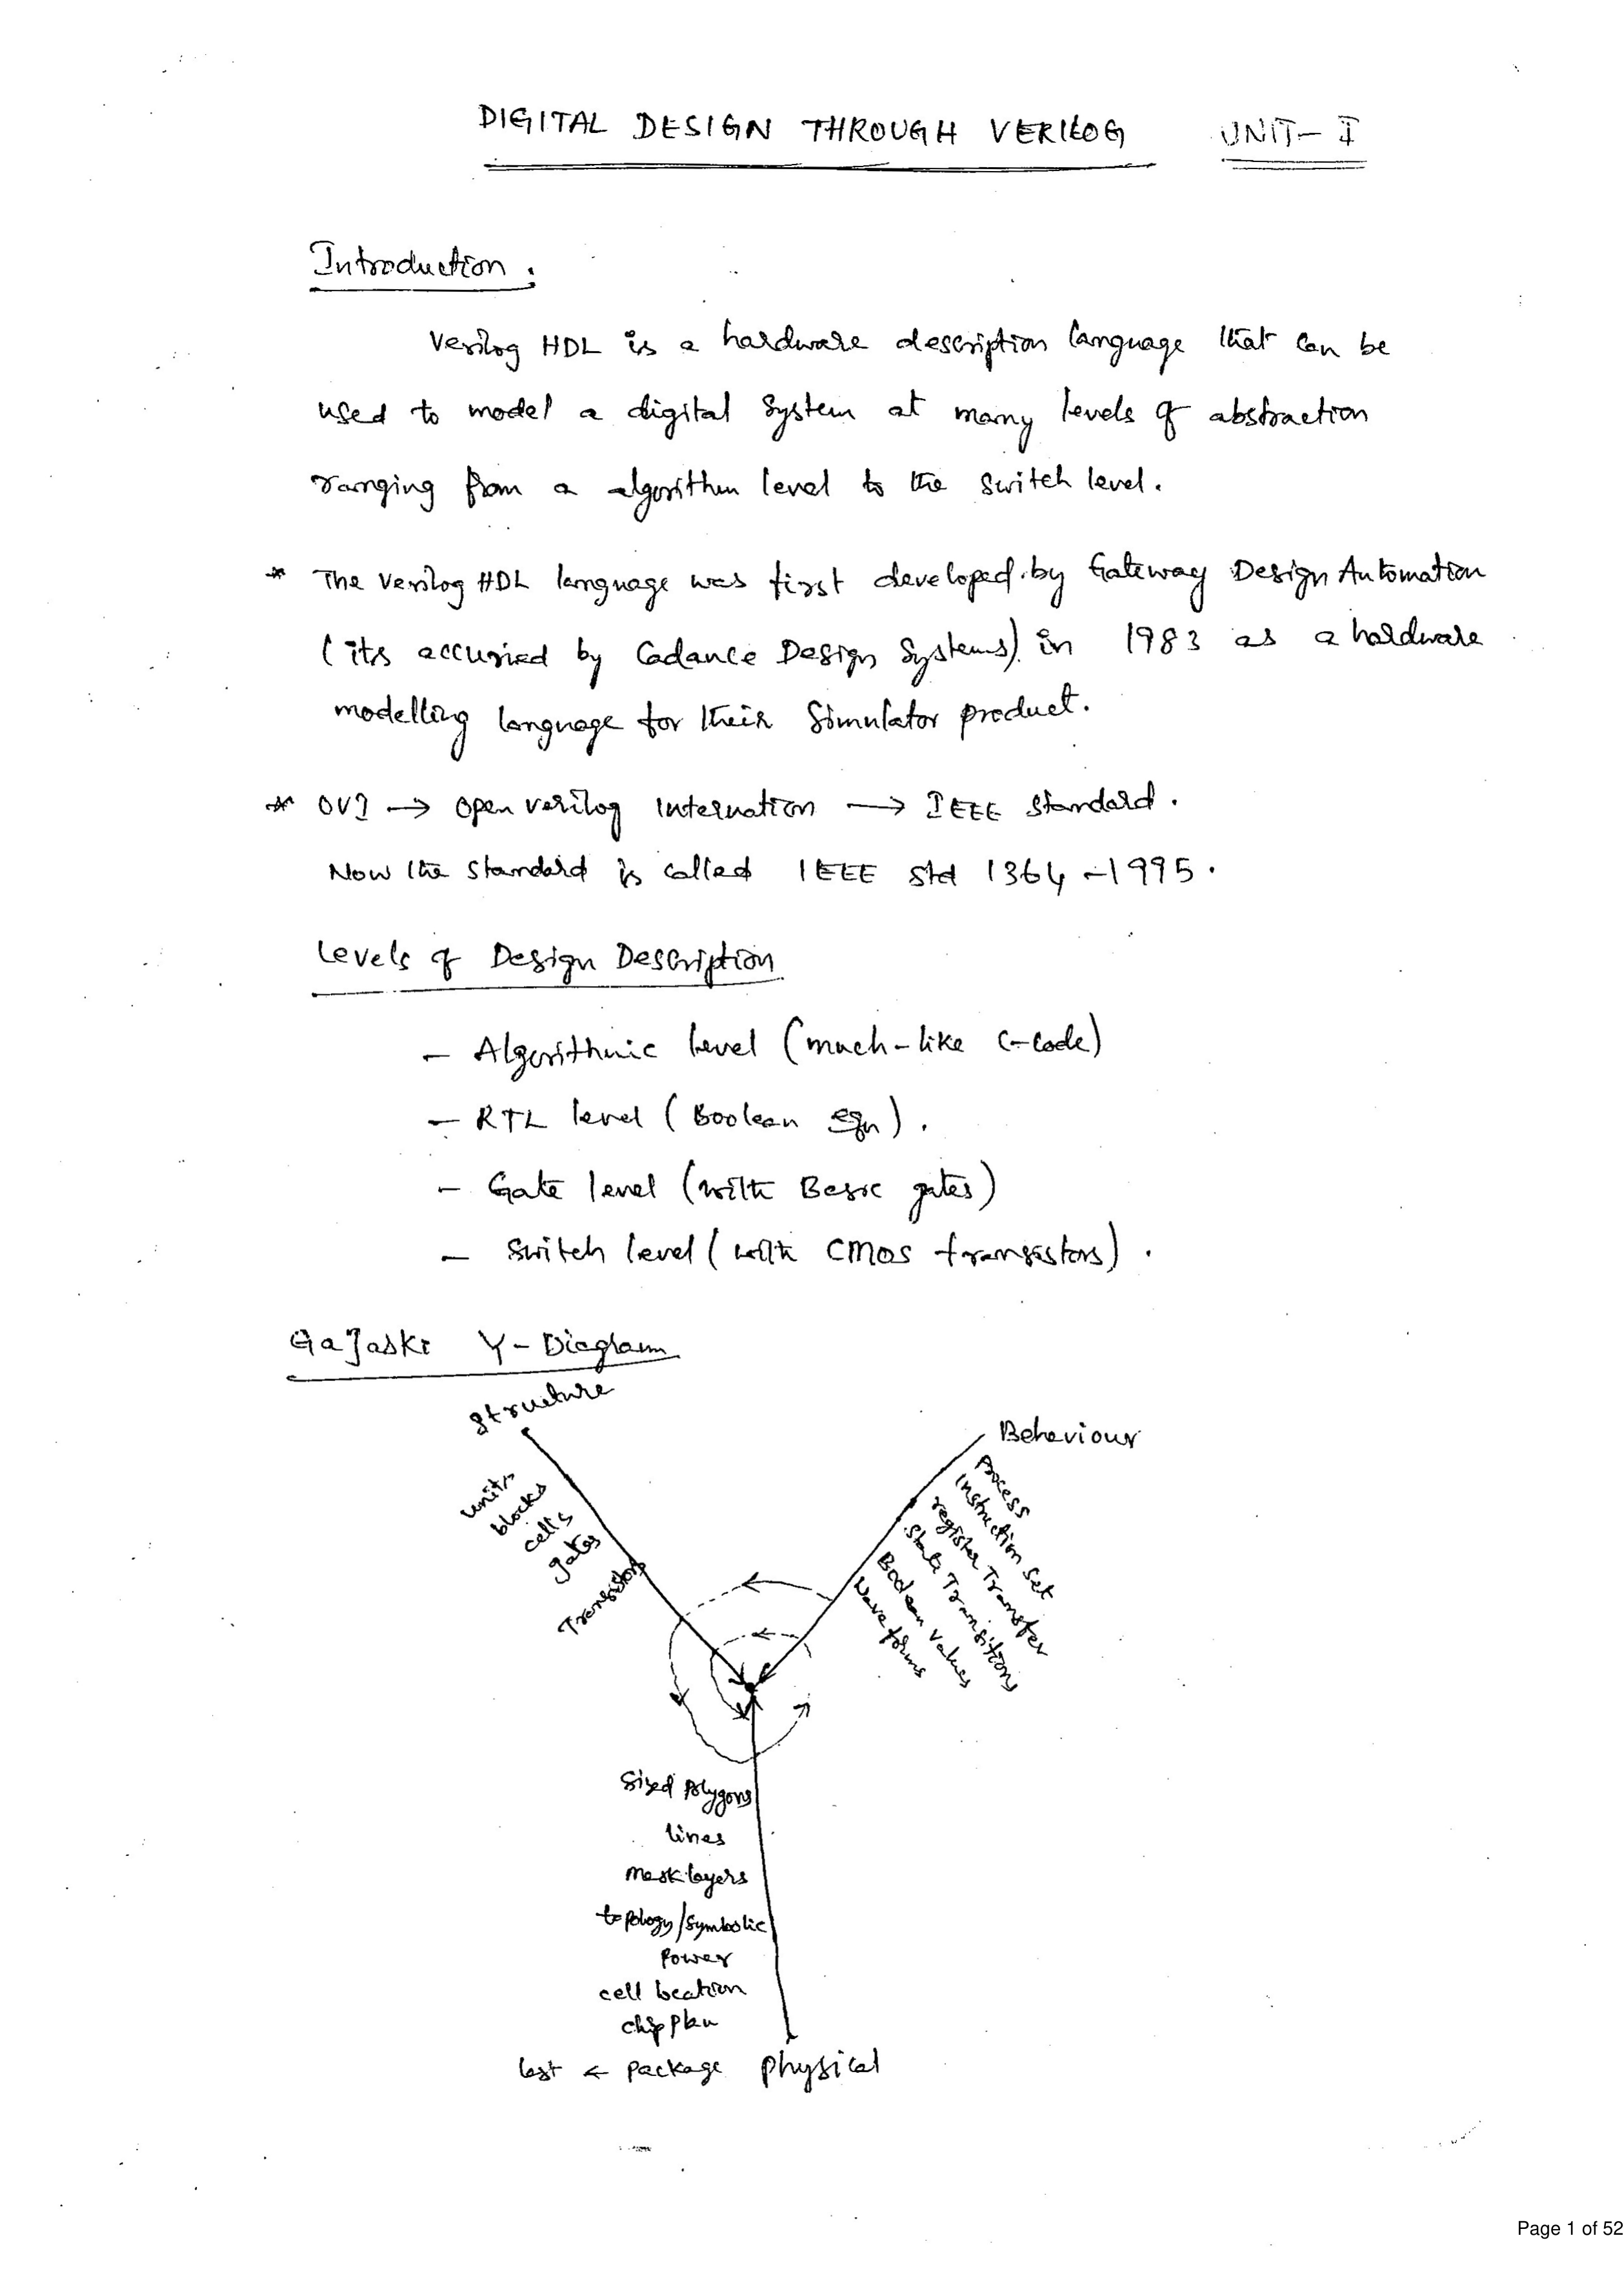 DIGITAL DESIGN THROUGH VERILOG UNIT- I
Introduction :
Verilog HDL is a hardware description language that can be
used to model a digital system at many levels of abstraction
ranging from a algorithm level to the switch level.
* The Verilog HDL language was first developed by Gateway Design Automation
(its accuried by Cadance Design Systems) in 1983 as a hardware
modelling language for their Simulator product.
* OVI → Open verilog Internation → IEEE Standard.
Now the standard is called IEEE std 1364-1995.
Levels of Design Description
- Algorithmic level (much-like C-code)
- RTL level (Boolean Eqn).
- Gate level (with Basic gates)
- Switch level (with CMOS transistors).
GaJaski Y-Diagram
Structure
Behaviour
units
blocks
cells
gates
Transistors
Process
Instruction set
register Transfer
State Transitions
Boolean values
Wave forms
Sized polygons
lines
Mask layers
topology/symbolic
Power
cell location
chip plan
last ← package physical
Page 1 of 52